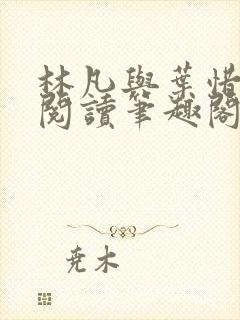 林凡與葉惜
閱讀筆趣閣
尭木